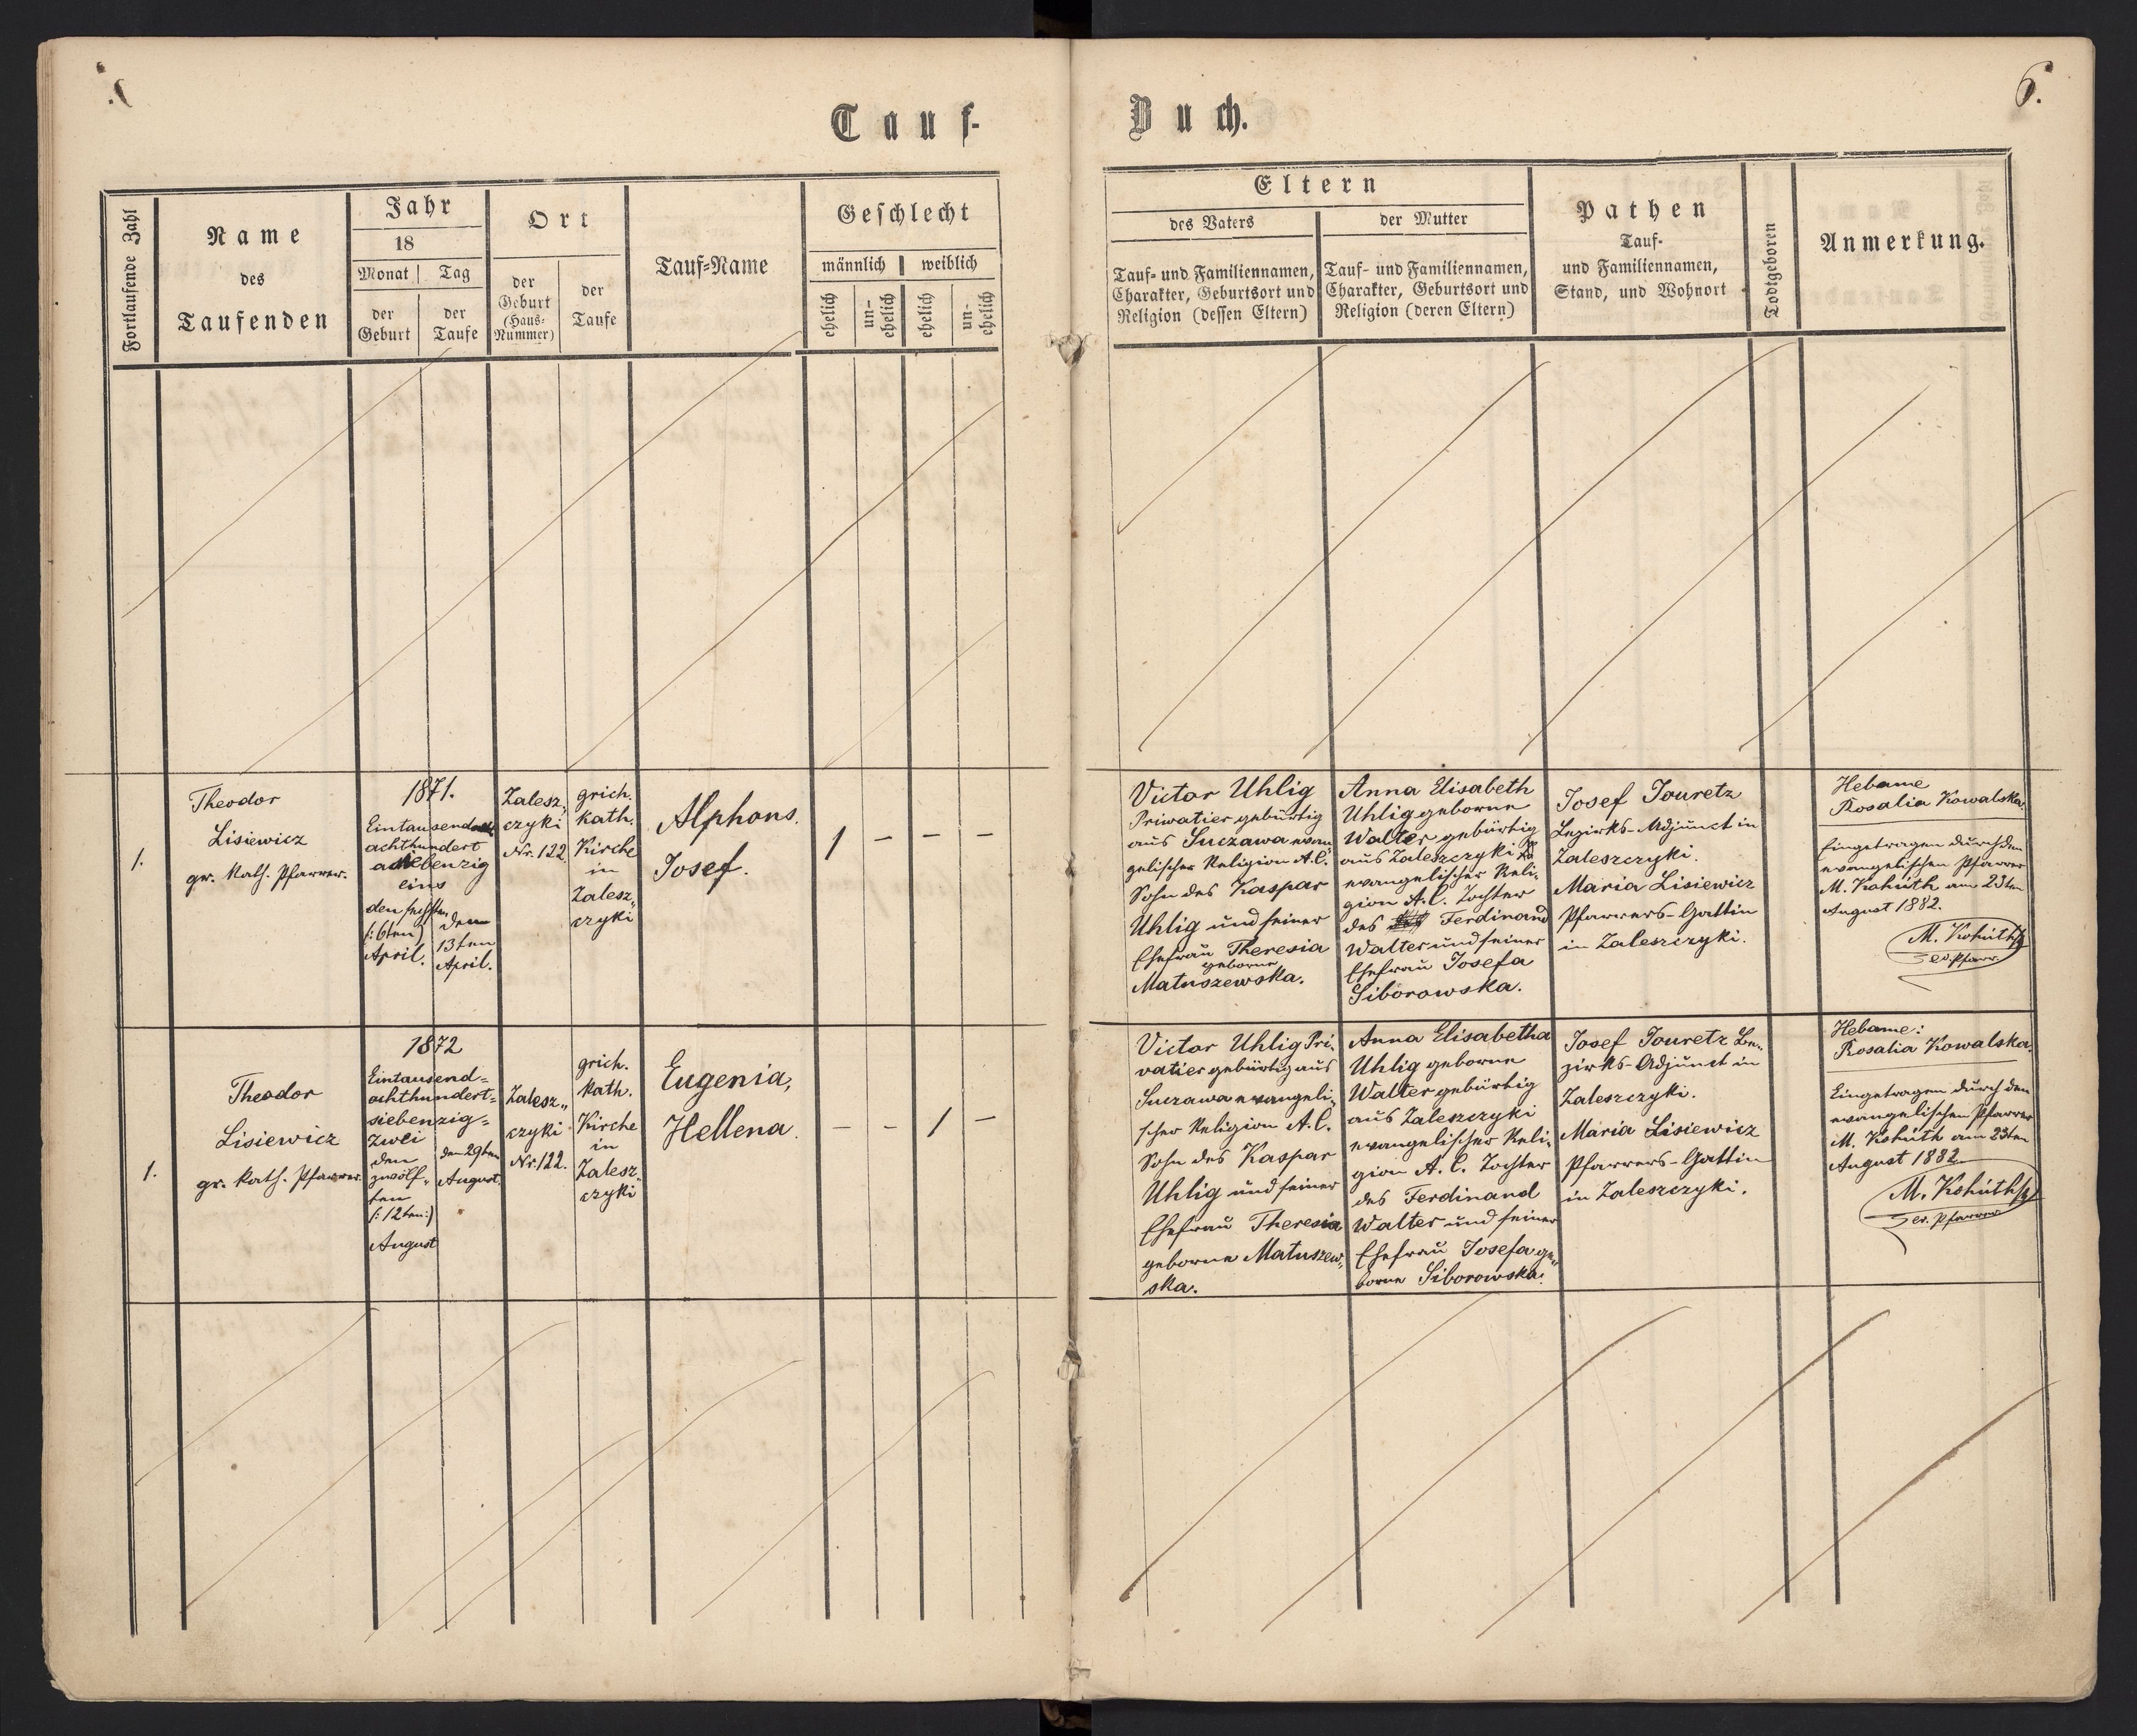 Tauf-
Buch.
6.
Fortlaufende Zahl
Name
des
Taufenden
Jahr
18
Monat
Tag
der
Geburt
der
Taufe
Ort
der
Geburt
(Haus-
Nummer)
der
Taufe
Tauf-Name
Geschlecht
männlich
weiblich
ehelich
un-
ehelich
ehelich
un-
ehelich
Eltern
des Vaters
der Mutter
Tauf- und Familiennamen,
Charakter, Geburtsort und
Religion (dessen Eltern)
Tauf- und Familiennamen,
Charakter, Geburtsort und
Religion (deren Eltern)
Pathen
Tauf-
und Familiennamen,
Stand, und Wohnort
Todtgeboren
Anmerkung.
1.
Theodor
Lisiewicz
gr. kath. Pfarrer.
1871.
Eintausend
achthundert
siebenzig
eins
den sechsten
(:6ten)
April.
den
13ten
April.
Zalesz„
czyki
Nr. 122
grich.
kath.
Kirche
in
Zalesz„
czyki
Alphons.
Josef.
1 – – –
Victor Uhlig
Priwatier gebürtig
aus Suczawa evan„
gelischer Religion A.C.
Sohn des Kaspar
Uhlig und seiner
Ehefrau Theresia
geborne
Matuszewska.
Anna Elisabeth
Uhlig geborne
Walter gebürtig
aus Zaleszczyki
evangelischer Reli„
gion A.C. Tochter
des Ferdinand
Walter und seiner
Ehefrau Josefa
Siborowska.
Josef Touretz
Bezirks-Adjunct in
Zaleszczyki.
Maria Lisiewicz
Pfarrers-Gattin
in Zaleszczyki.
Hebame
Rosalia Kowalska.
Eingetragen durch den
evangelischen Pfarrer
M. Kohúth am 23ten
August 1882.
M. Kohúth
ev. Pfarr
1.
Theodor
Lisiewicz
gr. kath. Pfarrer.
1872
Eintausend=
achthundert=
siebenzig=
zwei
den
zwölf„
ten
(:12ten:)
August
den 29ten
August.
Zalesz„
czyki
Nr. 122.
grich.
kath.
Kirche
in
Zalesz„
czyki
Eugenia,
Hellena.
– – 1 –
Victor Uhlig Pri„
vatier gebürtig aus
Suczawa evangeli„
scher Religion A.C.
Sohn des Kaspar
Uhlig und seiner
Ehefrau Theresia
geborne Matuszew„
ska.
Anna Elisabetha
Uhlig geborne
Walter gebürtig
aus Zaleszczyki
evangelischer Reli„
gion A.C. Tochter
des Ferdinand
Walter und seiner
Ehefrau Josefa ge„
borne Siborowska.
Josef Touretz Be„
zirks-Adjunct in
Zaleszczyki.
Maria Lisiewicz
Pfarrers-Gattin
in Zaleszczyki.
Hebame:
Rosalia Kowalska.
Eingetragen durch den
evangelischen Pfarrer
M. Kohúth am 23ten
August 1882
M. Kohúth
ev. Pfarrer